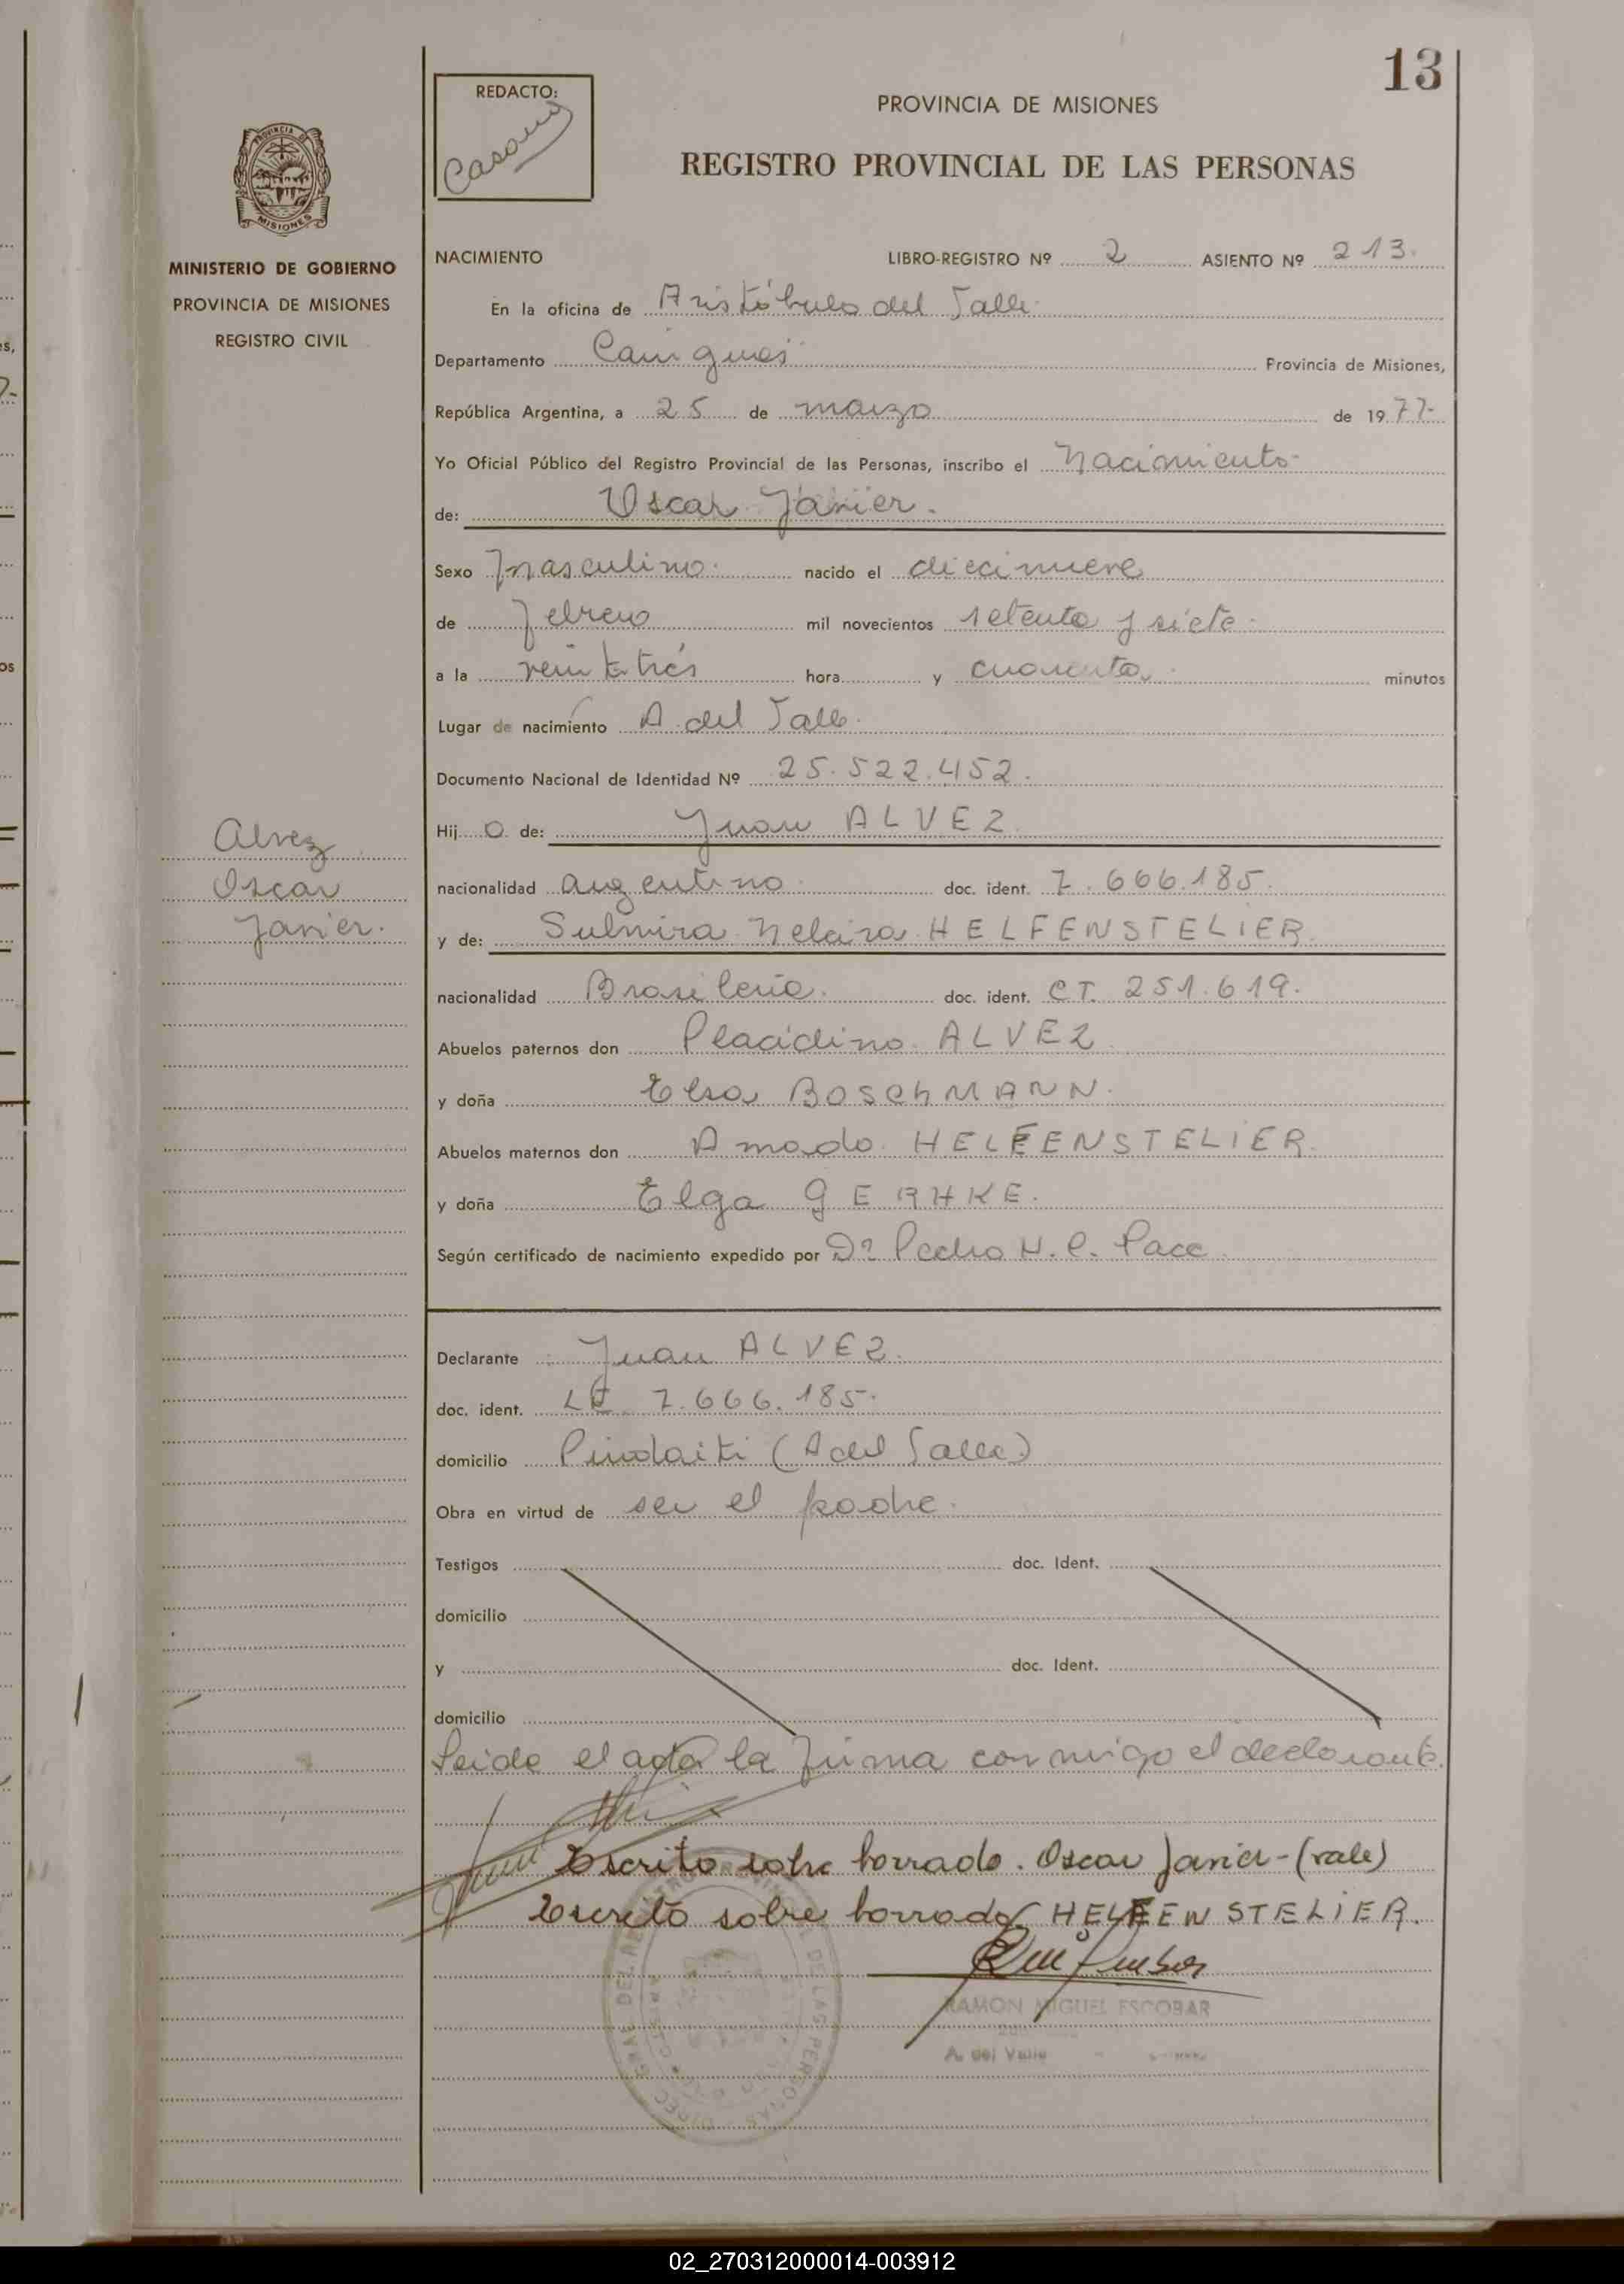 13
REDACTO:
PROVINCIA DE MISIONES
REGISTRO PROVINCIAL DE LAS PERSONAS
PROVINCIA DE
MISIONES
MINISTERIO DE GOBIERNO
PROVINCIA DE MISIONES
REGISTRO CIVIL
Alvez
Oscar
Javier.
NACIMIENTO LIBRO-REGISTRO Nº 2 ASIENTO Nº 213.
En la oficina de Aristóbulo del Valle.
Departamento Cainguás Provincia de Misiones,
República Argentina, a 25 de marzo de 1977-
Yo Oficial Público del Registro Provincial de las Personas, inscribo el Nacimiento-
de: Oscar Javier.
Sexo Masculino. nacido el diecinueve
de Febrero mil novecientos setenta y siete.
a la veintitrés hora y cuarenta. minutos
Lugar de nacimiento A. del Valle.
Documento Nacional de Identidad Nº 25.522.452.
Hij o de: Juan ALVEZ.
nacionalidad argentino. doc. ident. 7.666.185.
y de: Sulmira Nelcira HELFENSTELIER.
nacionalidad Brasileña. doc. ident. CT. 251.619.
Abuelos paternos don Placidino ALVEZ
y doña Elsa BOSChMANN.
Abuelos maternos don Amado HELFENSTELIER.
y doña Elga GERHKE.
Según certificado de nacimiento expedido por Dr Pedro N. C. Pace
Declarante Juan ALVEZ.
doc. ident. LE 7.666.185.
domicilio Pindaiti (A del Valle)
Obra en virtud de ser el padre.
Testigos doc. Ident.
domicilio
y doc. Ident.
domicilio
Leida el acta la firma conmigo el declarante.
Escrito sobre borrado. Oscar Javier-(vale)
Escrito sobre borrado HELFENSTELIER.
RAMON MIGUEL ESCOBAR
A. del Valle
02_270312000014-003912